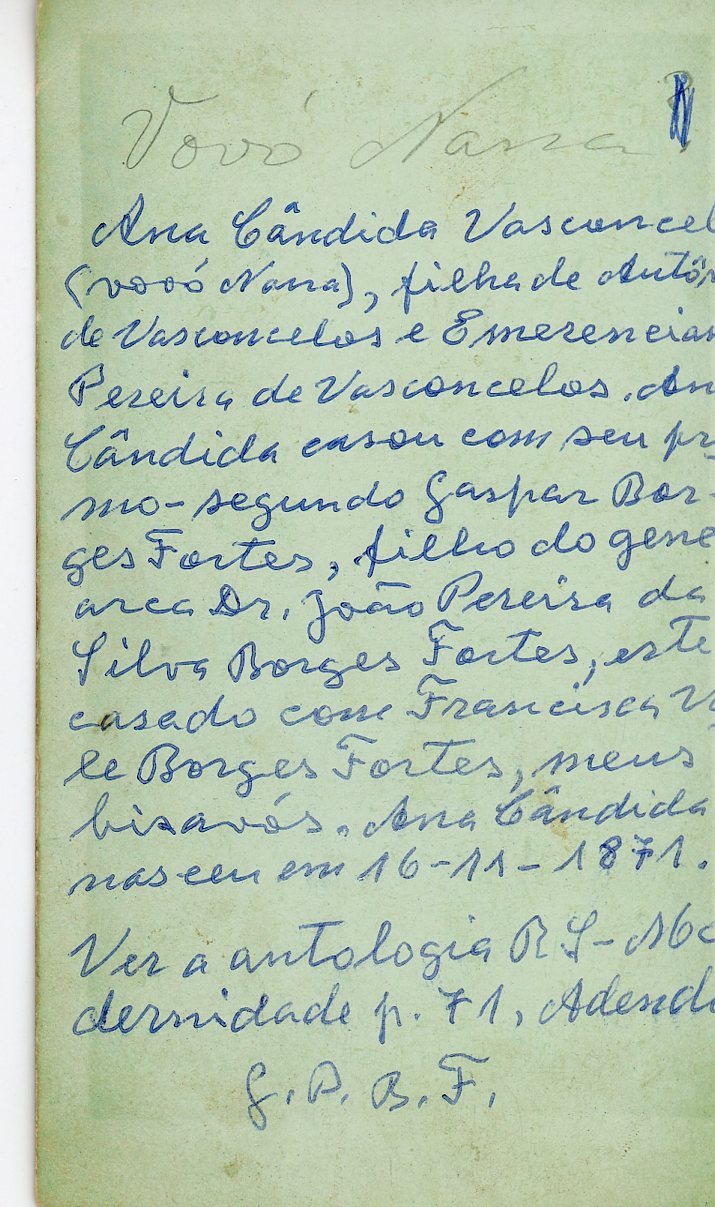 Vovó Nana
Ana Cândida Vasconcel
(vovó Nana), filha de Antôn
de Vasconcelos e Emerencian
Pereira de Vasconcelos. An
Cândida casou com seu pri
mo-segundo Gaspar Bor-
ges Fortes, filho do gene
arca Dr. João Pereira da
Silva Borges Fortes, este
casado com Francisca V
le Borges Fortes, meus
bisavós. Ana Cândida
nasceu em 16-11-1871.
Ver a antologia RS-Mo
dernidade p. 71, Adendo
G. P. B. F.